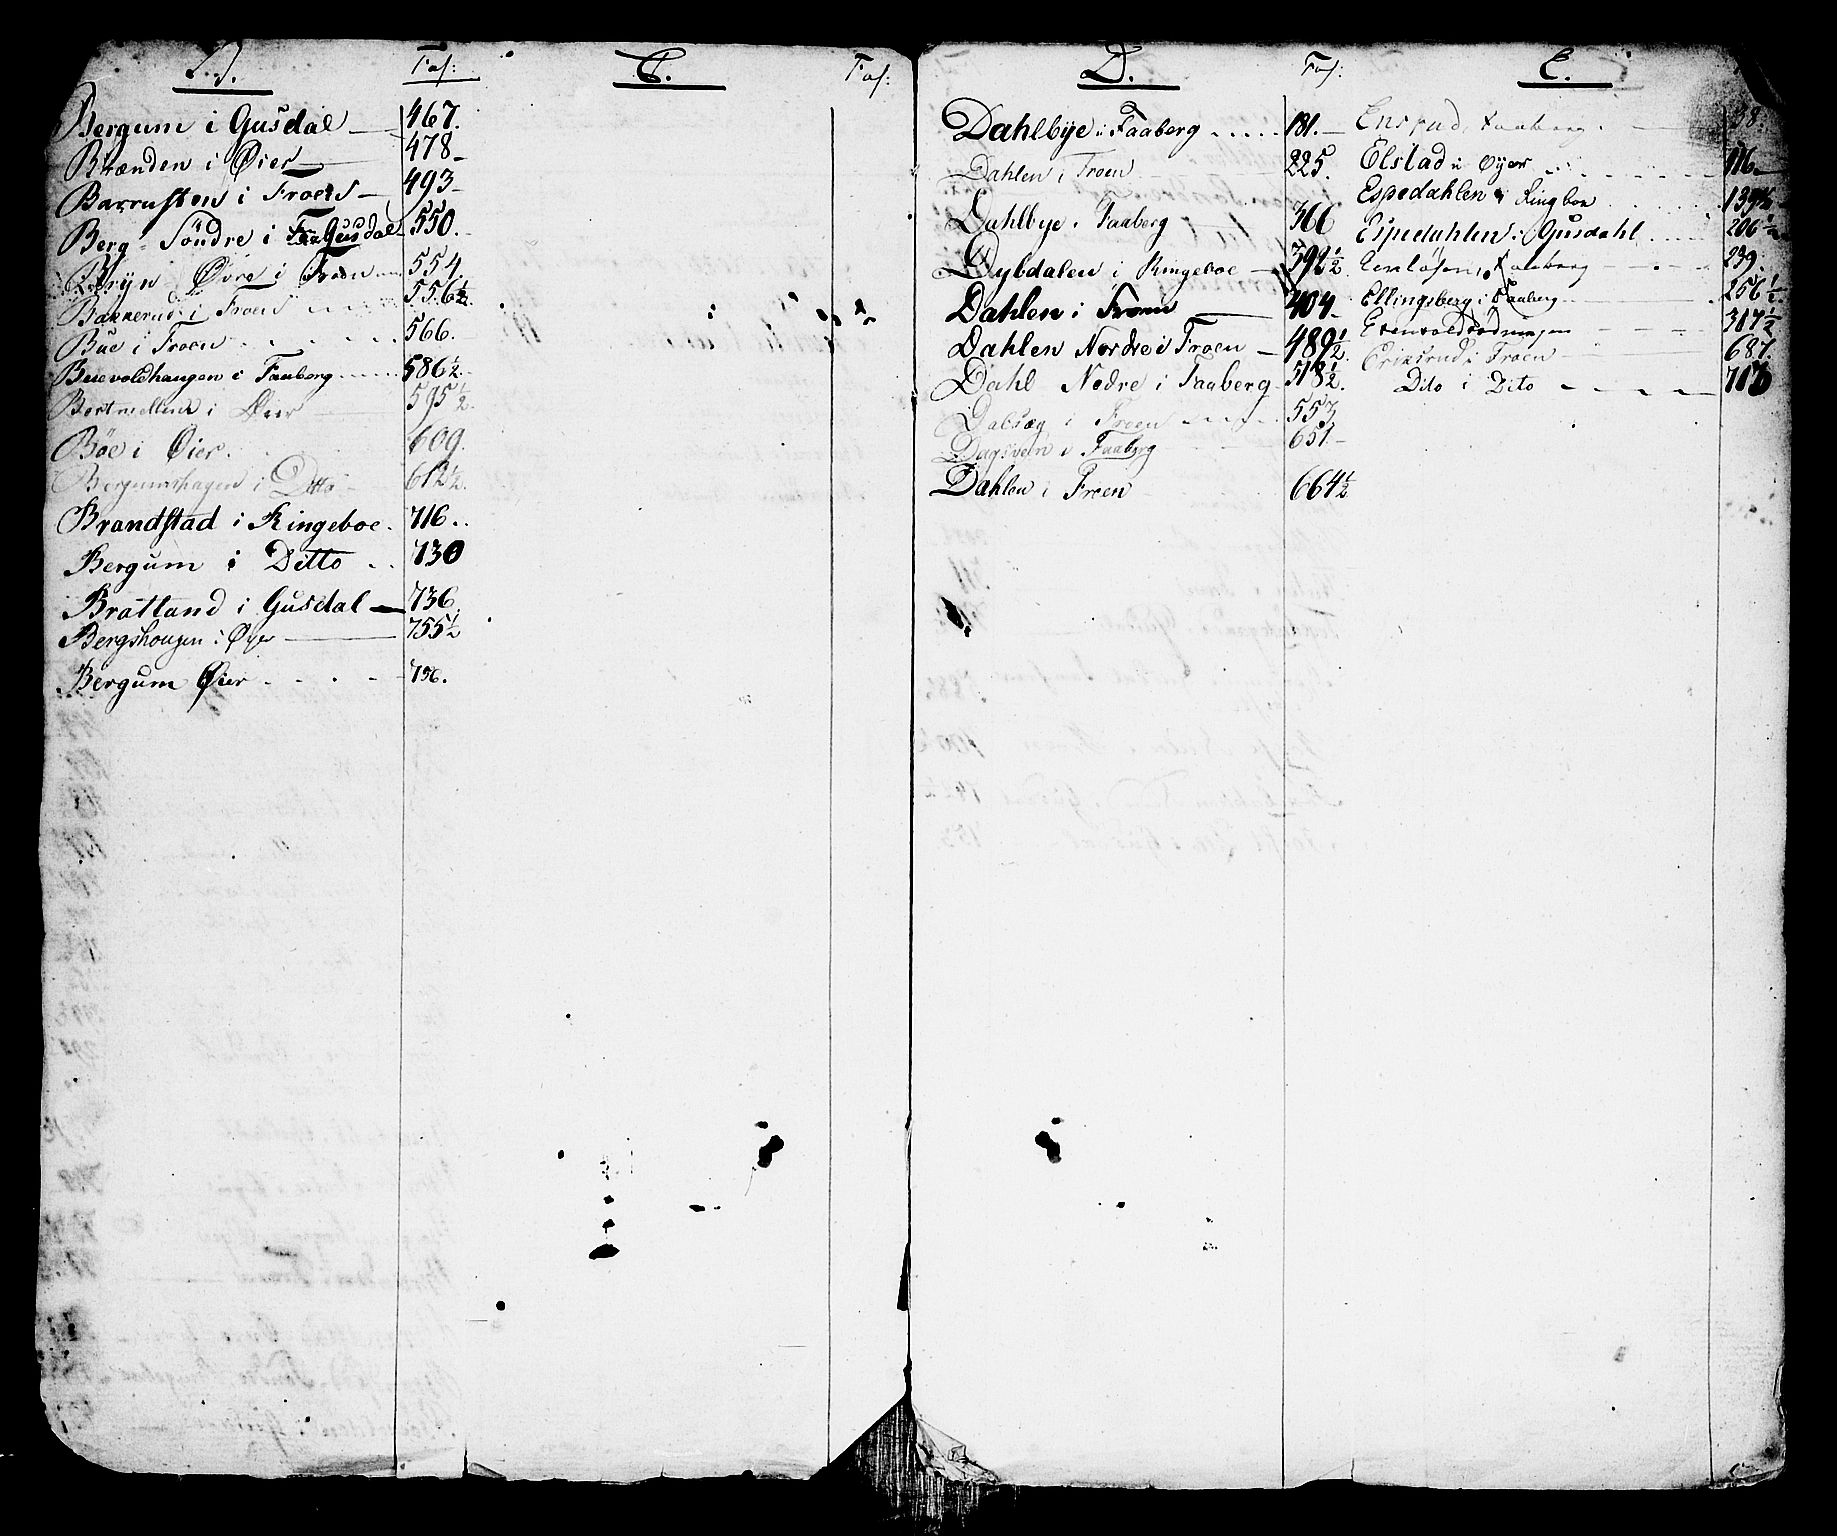 B. Fol:
Bergum i Gusdal 467.
Brænden i Øier 478
Barrusten i Froen 493
Berg Söndre i Gusdal 550.
Bryn Øvre i Froen 554
Bakkerud i Froen 556½
Büe i Froen 566.
Buevoldhaugen i Faaberg 586½
i Øier 595½
Böe i Øier. 609.
Bergumshagen i Ditto 612½
Brandstad i Ringeboe. 716.
Bergum i Ditto 730
Bratland i Gusdal 736.
Bergshougen i Øyer 755½
Bergum Øier 756.
C. Fol:
D. Fol:
Dahlbÿe i Faaberg 181.
Dahlen i Froen 225.
Dahlbye i Faaberg 366
Dybdalen i Ringeboe 392½
Dahlen i Froen 404
Dahlen Nordre i Froen 489½
Dahl Nedre i Faaberg 518½
Dalsæg i Froen 553
Dagsvein i Faaberg 651.
Dahlen i Froen 664½
E.
Ensrud, Faaberg. 38.
Elstad i Øyer 116
Espedahlen i Ringboe 139½
Espedahlen i Gusdahl 206½
i Faaberg 239.
Ellingsberg i Faaberg 256½
317½
Eriksrud i Froen 687.
Dito i Dito 717